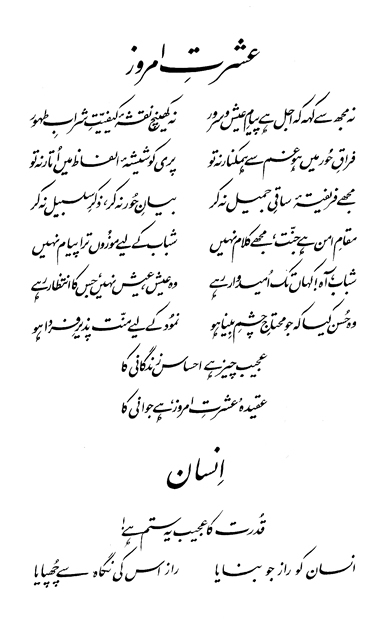 عشرتِ امروز
نہ مجھ سے کہہ کہ اجل ہے پیامِ عیش و سرور نہ کھینچ نقشۂ کیفیّتِ شرابِ طہور
فراقِ حور میں ہو غم سے ہمکنار نہ تو پری کو شیشۂ الفاظ میں اُتار نہ تو
مجھے فریفتۂ ساقیِ جمیل نہ کر بیانِ حُور نہ کر، ذکرِ سلسبیل نہ کر
مقامِ امن ہے جنّت، مجھے کلام نہیں شباب کے لیے موزوں ترا پیام نہیں
شباب، آہ! کہاں تک اُمیدوار رہے وہ عیش، عیش نہیں، جس کا انتظار رہے
وہ حُسن کیا کہ جو محتاجِ چشمِ بینا ہو نمود کے لیے منّت پذیرِ فردا ہو
عجیب چیز ہے احساس زندگانی کا
عقیدہ 'عشرتِ امروز' ہے جوانی کا
اِنسان
قُدرت کا عجیب یہ ستم ہے!
انسان کو راز جو بنایا راز اس کی نگاہ سے چُھپایا